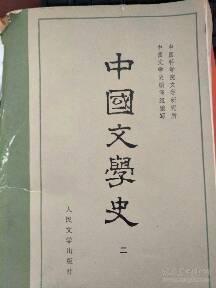 中國科学院文学研究所
中國文学史編寫組編寫
中國文學史
二
人民文学出版社